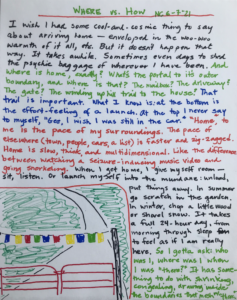 WHERE VS. HOW
I wish I had some cool-and-cosmic thing to say
about arriving home — enveloped in the woo-woo
warmth of it all, etc. But it doesn't happen that
way. It takes awhile. Sometimes even days to shed
the psychic baggage of wherever I have been. And
where is home, exactly? What's the portal to its outer
boundary, and where is that? The mailbox? The driveway?
The gate? The winding while trio to the house? That
trail is important. What I know is: at the bottom is
the effort-feeling of a launch. At the top I never say
to myself, "Gee, I wish I was still in the car." "Home," to
me is the pace of my surroundings. The pace of
Elsewhere (town, people, cars, a list) is faster and zig-zagged.
Home is slow, thick, and multidimensional. Like the difference
between watching a seizure-inducing music video and
going snorkeling. When I get home, I give myself room —
sit, listen. Or launch myself into the mundane: unload,
put things away. In summer
go scratch in the garden,
in winter, chop a little wood
or shovel snow. It takes
a full 24-hour day, from
morning through sleep
to feel as if I am really
here. So I gotta ask: who
was I, where was I when
I was "there?" It has some-
thing to do with shrinking,
congealing, drawing inside
the boundaries